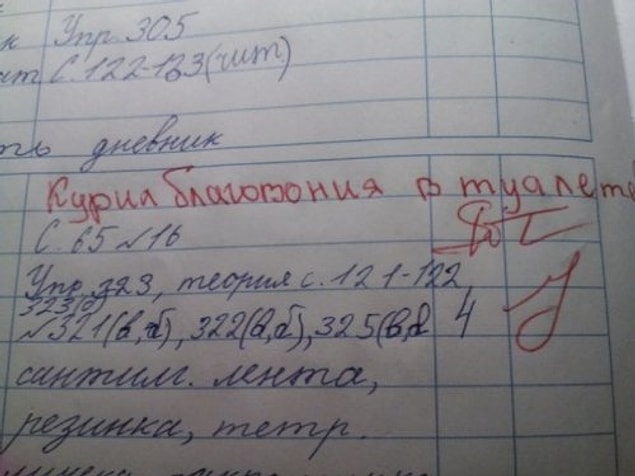 к Упр. 305
ит С. 122-133(чит)
ть дневник
Курил благовония в туалете
С. 65 №16
Упр 323, теория с. 121-122,
323(б)
№321(в,б), 322(а,б), 325(в, 4
сантим. лента,
резинка, тетр.